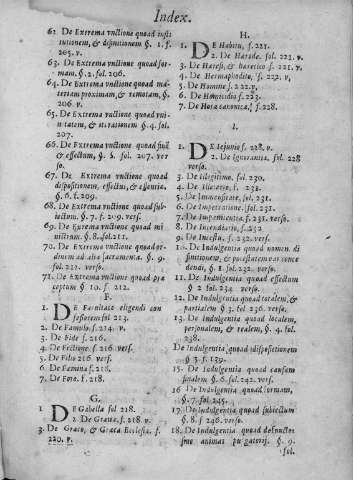 Index.
62. De Extrema vnctione quoad insti
tutionem, & definitionem §. 1. f.
205. v.
63. De Extrema vnctione quoad for-
mam. §. 2. fol. 206.
64. De Extrema vnctione quoad ma-
teriam proximam, & remotam, §.
206. v.
65. De Extrema vnctione quoad vni-
tatem, & iterationem §. 4. fol.
207.
66. De Extrema vnctione quoad finē
& effectum, §. 5. fol. 207. ver
so.
67. De Extrema vnctione quoad
dispositionem, effectus, & essentia,
§. 6. f. 209.
68. De Extrema vnctione quoad sub-
iectum. §. 7. f. 209. vers.
69. De Extrema vnctione quoad mi
nistrum. §. 8. fol. 211.
70. De Extrema vnctione quoad or-
dinem ad alia sacramenta. §. 9.
fol. 211. verso.
71. De Extrema vnctione quoad præ
ceptum §. 10. f. 212.
F.
1. DE Facultate eligendi con
fessorem fol. 213.
2. De Famulo. f. 214. v.
3. De Fide f. 216.
4. De Fictione. f. 216. vers.
5. De Filio 216. vers.
6. De Femina f. 218.
7. De Foro. f. 218.
G.
1 DE Gabella fol. 218.
2. De Gratia. f. 218. v.
3. De Græco, & Græca Ecclesia. f.
220. v.
H.
1. DE Habitu, f. 221.
2. De Hærede. fol. 221. v.
3. De Hæresi, & hæretico f. 221. v.
4. De Hermaphrodito, f. 222. v,
5. De Homine f. 222. v.
6. De Homicidio f. 223.
7. De Hora canonica, f. 228.
I.
1. DE Ieiunio f. 228. v.
2. De Ignorantia, fol. 228
verso.
3. De Illegitimo, fol. 230.
4. De f. 231.
5. De Immunitate, fol. 231.
6. De fol. 231.
7. De f. 231. verso.
8. De Incendiario, f. 232
9. De Incestu. f. 232. vers.
10. De Indulgentia quoad nomen. di
finitionem, & potestatem ea conce
dendi, §. 1. fol. 232. verso.
11. De Indulgentia quoad effectum
§ 2 fol. 234 verso.
12. De Indulgentia quoad totalem, &
partialem § 3. fol. 236. vers.
13. De Indulgentia quoad localem,
personalem, & realem, §. 4. fol.
238.
De Indulgentia quoad dispositionem
§ f. 139.
15. De Indulgentia quoad causam
finalem §. 6. fol. 242. vers.
16 De Indulgentia quoad formam,
§. 7. fol. 245.
17. De Indulgentia quoad subiectum
§. 8 f. 246. verso.
18. De Indulgentia quoad defunctor
um animas purgatorij. §. 9.
fol.